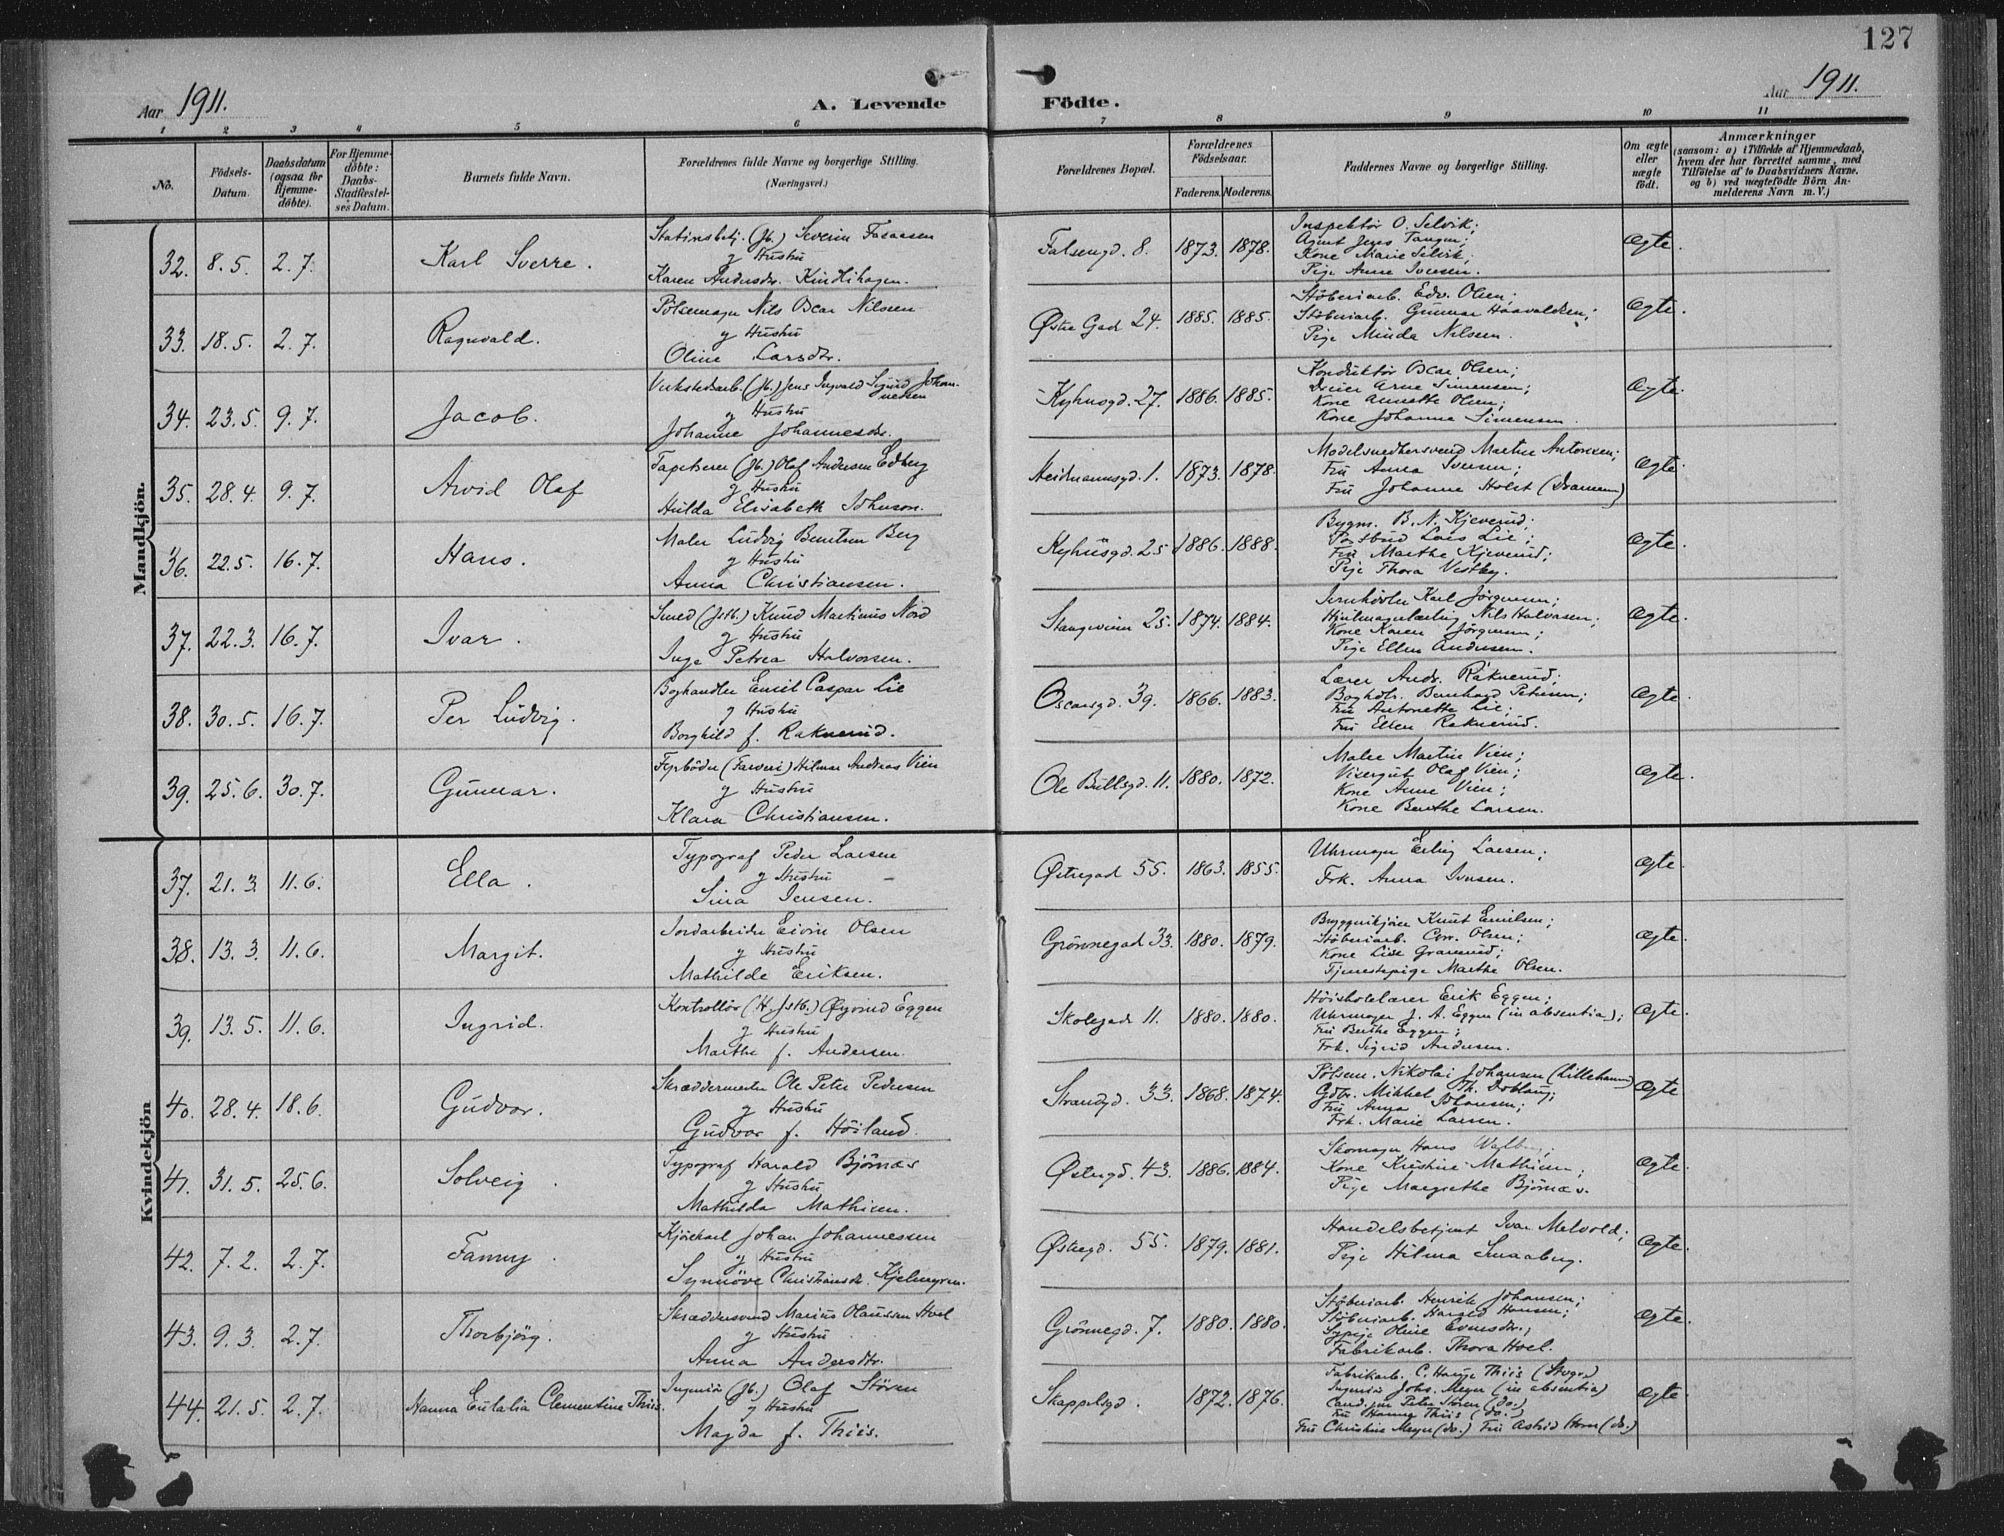 127
Aar 1911.
A. Levende Födte.
Aar 1911.
1 2 3 4 5 6 7 8 9 10 11
No.
Födsels-Datum.
Daabsdatum (ogsaa for Hjemme-döbte).
For Hjemme-döbte: Daabs-Stadfæstel-ses Datum.
Barnets fulde Navn.
Forældrenes fulde Navne og borgerlige Stilling.
(Næringsvei.)
Forældrenes Bopæl.
Forældrenes Födselsaar.
Faderens. Moderens.
Faddernes Navne og borgerlige Stilling.
Om ægte eller uægte födt.
Anmærkninger
(saasom: a) i Tilfælde af Hjemmedaab,
hvem der har forrettet samme, med
Tilföielse af to Daabsvidners Navne.
og b) ved uægtefödte Börn An-
melderens Navn m. V.)
Mandkjön.
32. 8. 5. 2. 7. Karl Sverre.
Stationsbetj. (Jb.) Severin
g Hustru
Karen Andersdr. Kindlihagen.
Falsengd. 8. 1873. 1878.
Inspektör O. Selvik;
Agent Jens Tangen;
Kone Marie Selvik;
Pige Anne Iversen.
ægte.
33. 18. 5. 2. 7. Ragnvald.
Pölsemagr Nils Oscar Nilssen
g Hustru
Oline Larsdtr.
Østre Gad 24. 1885. 1885.
Stöberiarb. Edv. Olsen;
Stöberiarb. Gunnar Haavaldsen;
Pige Minda Nilssen.
ægte.
34. 23. 5. 9. 7. Jacob.
Verkstedsarb. (Jb.) Jens Ingvald Sigurd Johan-
nesen
g Hustru
Johanne Johannesdr.
Kyhnsgd. 27. 1886. 1885.
Konduktör Oscar Olsen;
Dreier Arne Simensen;
Kone Annette Olsen;
Kone Johanne Simensen.
ægte.
35. 28. 4. 9. 7. Arvid Olaf
Tapetserer (Jb.) Olaf Andersen Edberg
g Hustru
Hulda Elisabeth Johnson.
Heidmannsgd. 1. 1873. 1878.
Modelsnedkersvend Martin Antonsen;
Fru Anna Iversen;
Fru Johanne Holst (Drammen)
ægte.
36. 22. 5. 16. 7. Hans.
Maler Ludvig Berntsen Berg
g Hustru
Anna Christiansen.
Kyhnsgd. 25 1886. 1888.
Bygm. B. N. Kjeverud;
Postbud Lars Lie;
Fru Marthe Kjeverud;
Pige Thora Vestby.
ægte.
37. 22. 3. 16. 7. Ivar.
Smed (Jstb.) Knud Martinius Nord
g Hustru
Inge Petrea Halvorsen.
Stangeveien 25. 1874. 1884.
Karl Jörgensen;
Nils Halvorsen;
Kone Karen Jörgensen;
Pige Ellen Andersen.
ægte.
38. 30. 5. 16. 7. Per Ludvig.
Boghandler Emil Caspar Lie
g Hustru
Borghild f. Raknerud.
Oscarsgd. 39. 1866. 1883.
Lærer Andr. Raknerud;
Boghdlr. Bernhard Petersen;
Fru Antonette Lie;
Fru Ellen Raknerud.
ægte.
39. 25. 6. 30. 7. Gunnar.
Fyrböder (Farveri) Hilmar Andreas Vien
g Hustru
Klara Christiansen.
Ole Bullsgd. 11. 1880. 1872.
Maler Martin Vien;
Visergut Olaf Vien;
Kone Anne Vien;
Kone Berthe Larsen.
ægte.
Kvindekjön
37. 21. 3. 11. 6. Ella.
Typograf Peder Larsen
g Hustru
Sina Jensen.
Østregad 55. 1863. 1855.
Uhrmagr Erling Larsen;
Frk. Anna Iversen.
ægte.
38. 13. 3. 11. 6. Margit.
Jordarbeider Eivin Olsen
g Hustru
Mathilde Eriksen.
Grönnegad 33. 1880. 1879.
Bryggerikjörer Knut Emilsen;
Stöberiarb. Corr. Olsen;
Kone Lise Granerud;
Tjenestepige Marthe Olsen.
ægte.
39. 13. 5. 11. 6. Ingrid.
Kontrollör (H. Jstb.) Øyvind Eggen
g Hustru
Marthe f. Andersen.
Skolegade 11. 1880. 1880.
Höiskolelærer Erik Eggen;
Uhrmager J. A. Eggen (in absentia);
Fru Berthe Eggen;
Frk. Sigrid Andersen.
ægte.
40. 28. 4. 18. 6. Gudvor.
Skræddermester Ole Peter Pedersen
g Hustru
Gudvor f. Höiland.
Strandgd. 33. 1868. 1874.
Pölsem. Nikolai Johansen (Lillehamr)
Gdbr. Mikkel Th. Doblaug;
Fru Anna Johansen;
Frk. Marie Larsen.
ægte.
41. 31. 5. 25. 6. Solveig.
Typograf Harald Björnæs
g Hustru
Mathilda Mathisen.
Østregd. 43. 1886. 1884.
Skomagr Hans
Kone Kristine Mathisen;
Pige Margrethe Björnæs.
ægte.
42. 7. 2. 2. 7. Fanny.
Kjörekarl Johan Johannessen
g Hustru
Synnöve Christiansdr. Kjelmgren.
Østregd. 55. 1879. 1881.
Handelsbetjent Ivar Melvold;
Pige Hilma Smaaberg.
ægte.
43. 9. 3. 2. 7. Thorbjörg.
Skræddersvend Marius Olaussen Hoel
g Hustru
Anna Andersdtr.
Grönnegd. 7. 1880. 1880.
Stöberiarb. Henrik Johansen;
Stöberiarb. Harald Hansen;
Sypige Oline Evensdr.;
Fabrikarb. Thora Hoel.
ægte.
44. 21. 5. 2. 7. Hanna Eulalia Clementine Thiis.
Ingeniör (Jb.) Olaf Stören
g Hustru
Magda f. Thiis.
Skappelsgd. 1872. 1876.
Fabrikarb. C. Hauge Thiis
Ingeniör Johs. Meyer (in absentia)
Cand. jur Peter Stören (do.)
Fru Hanna Thiis (do.)
Fru Christine Meyer (do.) Fru Astrid Horn (do.)
ægte.